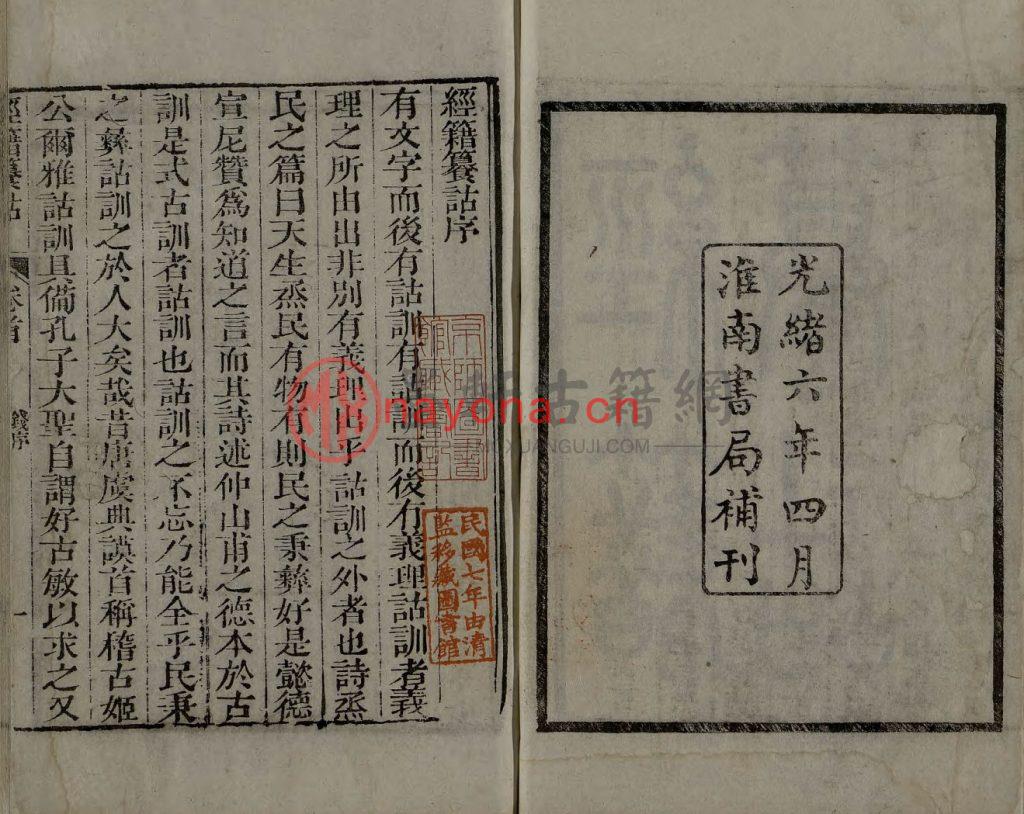 光緒六年四月
淮南書局補刊
經籍籑詁序
有文字而後有詁訓有詁訓而後有義理詁訓者義
理之所由出非別有義理出乎詁訓之外者也詩烝
民之篇曰天生烝民有物有則民之秉彝好是懿德
宣尼贊為知道之言而其詩述仲山甫之德本於古
訓是式古訓者詁訓也詁訓之不忘乃能全乎民秉
之彝詁訓之於人大矣哉昔唐虞典謨首稱稽古姬
公爾雅詁訓具備孔子大聖自謂好古敏以求之又
經籍籑詁
卷首
錢序
一
京師圖書
館藏書記
民國七年由清
監移藏圖書館
古籍網
nayona.cn
MOXUANGUJI.COM